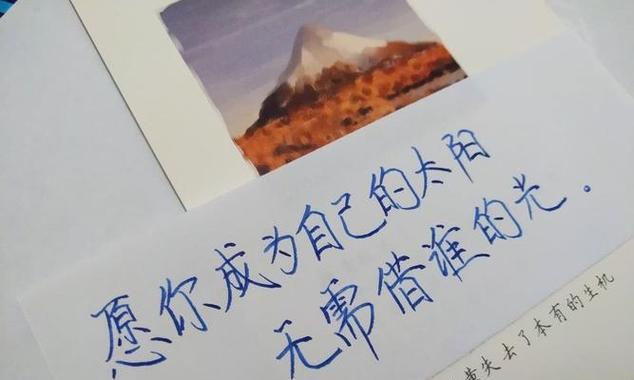 愿你成为自己的太阳
无需借谁的光.
失去了本有的生机